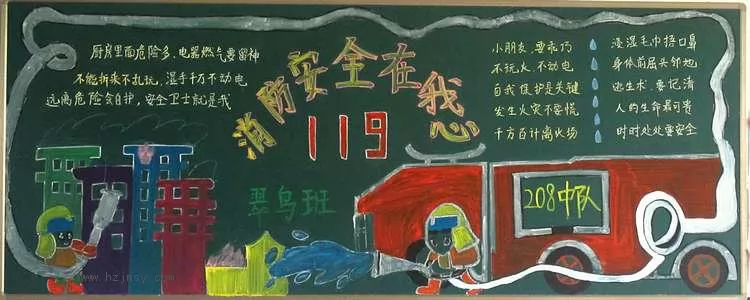 厨房里面危险多、电器燃气要留神
不能拆来不乱玩、湿手千万不动电
远离危险会自护，安全卫士就是我
消防安全在我心
119
翠鸟班
小朋友，要乖巧
不玩火、不动电
自我保护是关键
发生火灾不要慌
千方百计离火场
浸湿毛巾捂口鼻
身体前屈头邻地
逃生术、要记清
人的生命最可贵
时时处处要安全
208中队
www.hzjnsy.com